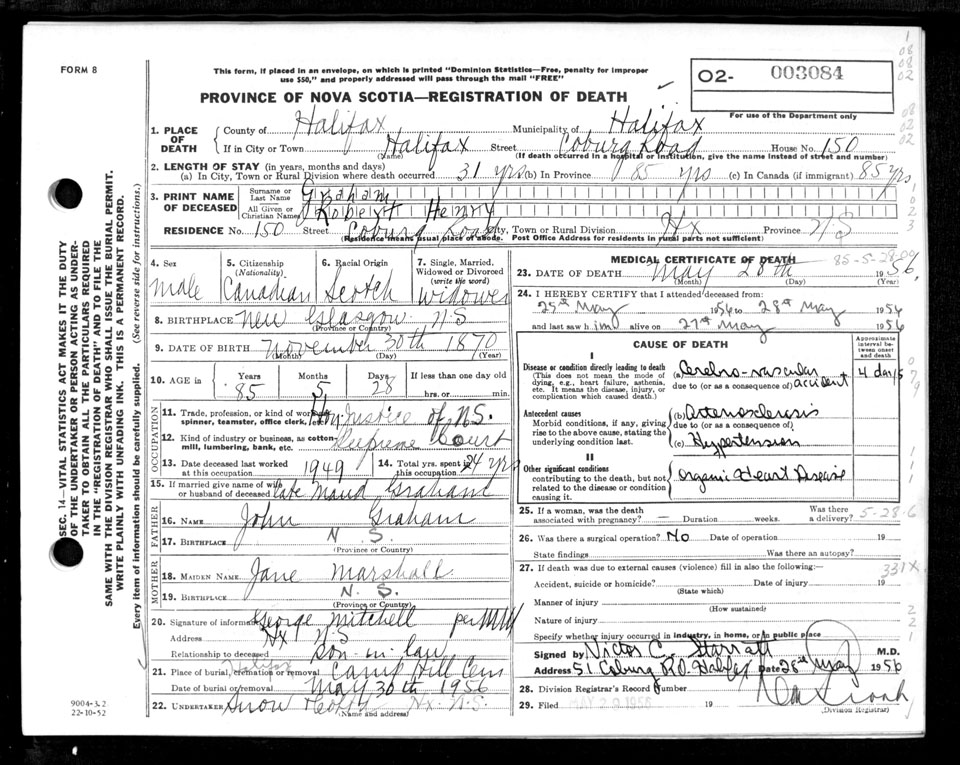 FORM 8
This form, if placed in an envelope, on which is printed "Dominion Statistics—Free, penalty for improper
use $50," and properly addressed will pass through the mail "FREE"
O2- 003084
For use of the Department only
PROVINCE OF NOVA SCOTIA—REGISTRATION OF DEATH
1. PLACE OF DEATH
County of Halifax Municipality of Halifax
If in City or Town Halifax Street Coburg Road House No. 150
(Name) (If death occurred in a hospital or institution, give the name instead of street and number)
2. LENGTH OF STAY (in years, months and days)
(a) In City, Town or Rural Division where death occurred 31 yrs (b) In Province 85 yrs (c) In Canada (if immigrant) 85 yrs
3. PRINT NAME OF DECEASED
Surname or Last Name Graham
All Given or Christian Names Robert Henry
RESIDENCE No. 150 Street Coburg Road City, Town or Rural Division Hx Province N S
(Residence means usual place of abode. Post Office Address for residents in rural parts not sufficient)
4. Sex male
5. Citizenship (Nationality) Canadian
6. Racial Origin Scotch
7. Single, Married, Widowed or Divorced (write the word) Widower
8. BIRTHPLACE New Glasgow N S
(Province or Country)
9. DATE OF BIRTH November 30th 1870
(Month) (Day) (Year)
10. AGE in Years 85 Months 5 Days 28 If less than one day old hrs. or min.
OCCUPATION
11. Trade, profession, or kind of work as spinner, teamster, office clerk, etc. Hon Justice of N.S.
12. Kind of industry or business, as cotton-mill, lumbering, bank, etc. Supreme Court
13. Date deceased last worked at this occupation 1949
14. Total yrs. spent in this occupation 24 yrs
15. If married give name of wife or husband of deceased late Maud Graham
FATHER
16. NAME John Graham
17. BIRTHPLACE N S.
(Province or Country)
MOTHER
18. MAIDEN NAME Jane Marshall
19. BIRTHPLACE N. S.
(Province or Country)
20. Signature of informant George Mitchell per
Address Hx N-S
Relationship to deceased son-in-law
21. Place of burial, cremation or removal Halifax Camp Hill Cem
Date of burial or removal May 30th 1956
22. UNDERTAKER Snow Hx. N.S.
(Name and address)
MEDICAL CERTIFICATE OF DEATH
85-5-28-0
23. DATE OF DEATH May 28th 1956
(Month) (Day) (Year)
24. I HEREBY CERTIFY that I attended deceased from:
25th May 1956 to 28th May 1956
and last saw him alive on 27th May 1956
CAUSE OF DEATH
Approximate interval between onset and death
I
Disease or condition directly leading to death (a) Cerebro-vascular accident 4 days
(This does not mean the mode of dying, e.g., heart failure, asthenia, etc. It means the disease, injury, or complication which caused death.)
due to (or as a consequence of)
Antecedent causes (b) Arteriosclerosis
Morbid conditions, if any, giving rise to the above cause, stating the underlying condition last.
due to (or as a consequence of)
(c) Hypertension
II
Other significant conditions Organic Heart Disease
contributing to the death, but not related to the disease or condition causing it.
25. If a woman, was the death associated with pregnancy? — Duration weeks. Was there a delivery? 5-28-6
26. Was there a surgical operation? No Date of operation 19
State findings Was there an autopsy?
27. If death was due to external causes (violence) fill in also the following:— 331X
Accident, suicide or homicide? Date of injury 19
(State which)
Manner of injury
(How sustained)
Nature of injury
Specify whether injury occurred in industry, in home, or in public place
Signed by Victor C. Starratt M.D.
Address 51 Coburg RD. Halifax Date 28th May 1956
28. Division Registrar's Record Number
29. Filed MAY 29 1956 19
(Division Registrar)
9004-3.2
22-10-52
SEC. 14—VITAL STATISTICS ACT MAKES IT THE DUTY
OF THE UNDERTAKER OR PERSON ACTING AS UNDER-
TAKER TO OBTAIN ALL THE PARTICULARS REQUIRED
IN THE "REGISTRATION OF DEATH" AND TO FILE THE
SAME WITH THE DIVISION REGISTRAR WHO SHALL ISSUE THE BURIAL PERMIT.
WRITE PLAINLY WITH UNFADING INK. THIS IS A PERMANENT RECORD.
Every item of information should be carefully supplied. (See reverse side for instructions.)